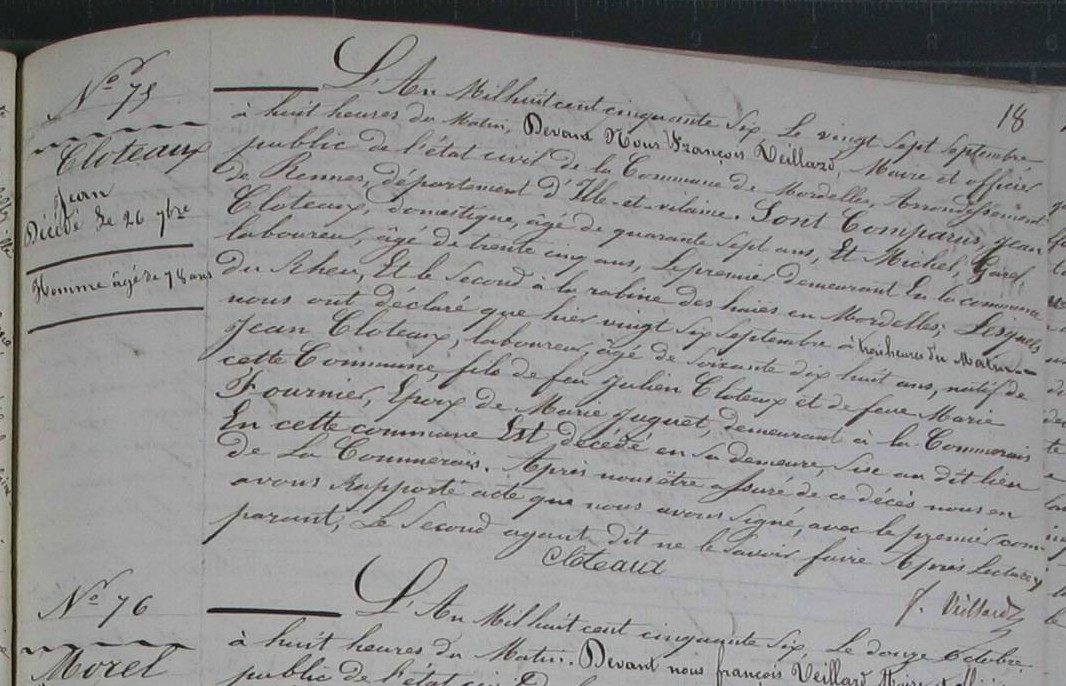 18
No 75
Cloteaux
Jean
Décédé Le 26 7bre
Homme âgé de 78 ans
L'An Mil huit cent cinquante Six Le vingt Sept Septembre
à huit heures du Matin, Devant Nous François Veillard, Maire et officier
public de l'état civil de la Commune de Mordelles, Arrondissement
de Rennes, département d'Ille-et-vilaine. Sont Comparus, Jean
Cloteaux, domestique, âgé de quarante Sept ans, Et Michel,
laboureur, âgé de trente cinq ans, Le premier demeurant En la commune
du Rheu, Et le Second à la rabine des haies en Mordelles; Lesquels
nous ont déclaré que hier vingt Six Septembre à trois heures du Matin
Jean Cloteaux, laboureur, âgé de Soixante dix huit ans, natif de
cette Commune, fils de feu Julien Cloteaux et de feue Marie
Fournier, Epoux de Marie Juguet, demeurant à la Commerais
En cette commune Est décédé en sa demeure, Sise au dit lieu
de La Commerais. Après nous être assuré de ce décès nous en
avons Rapporté acte que nous avons Signé, avec le premier com-
parant; Le Second ayant dit ne le Savoir faire Après Lecture
Cloteaux
f. Veillard
No 76
Morel
L'An Mil huit cent cinquante Six, Le douze Octobre
à huit heures du Matin. Devant nous françois Veillard, Maire et
public de l'état civil